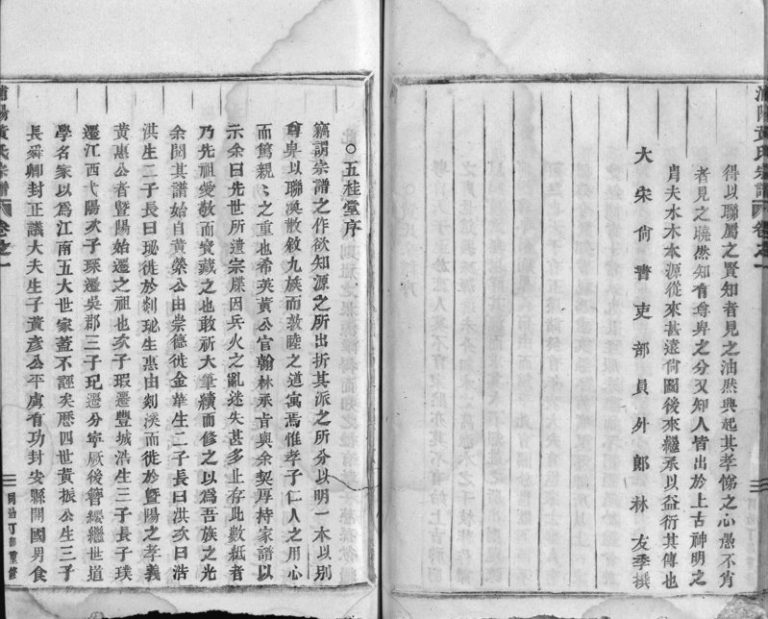 得以聯屬之賢知者見之油然興起其孝悌之心愚不肖
者見之曉然知有尊卑之分又知人皆出於上古神明之
胄夫水木本源從來甚遠尙圖後來繼承以益衍其傳也
大宋尙書吏部員外郞林友季撰
〇五桂堂序
竊謂宗譜之作欲知源之所出折其派之所分以明一木以別
尊卑以聯渙散敘九族而敦睦之道寓焉惟孝子仁人之用心
而篤親〻之重也希英黃公官翰林承旨與余契厚持家譜以
示余曰先世所遺宗牒因兵火之亂迷失甚多止存此數紙者
乃先祖愛敬而寶藏之也敢祈大筆續而修之以爲吾族之光
余閱其譜始自黃榮公由崇德徙金華生二子長曰洪次曰浩
洪生二子長曰玭徙於剡玭生惠由剡溪而徙於曁陽之孝義
黃惠公者曁陽始遷之祖也次子瑕遷豐城浩生三子長子璞
遷江西弋陽次子琛遷吳郡三子玘遷分寧厥後簪纓繼世道
學名家以爲江南五大世家蓋不誣矣厯四世黃振公生三子
長舜卿封正議大夫生子黃彥公平虜有功封安縣開國男食
浦陽黃氏宗譜
卷之一